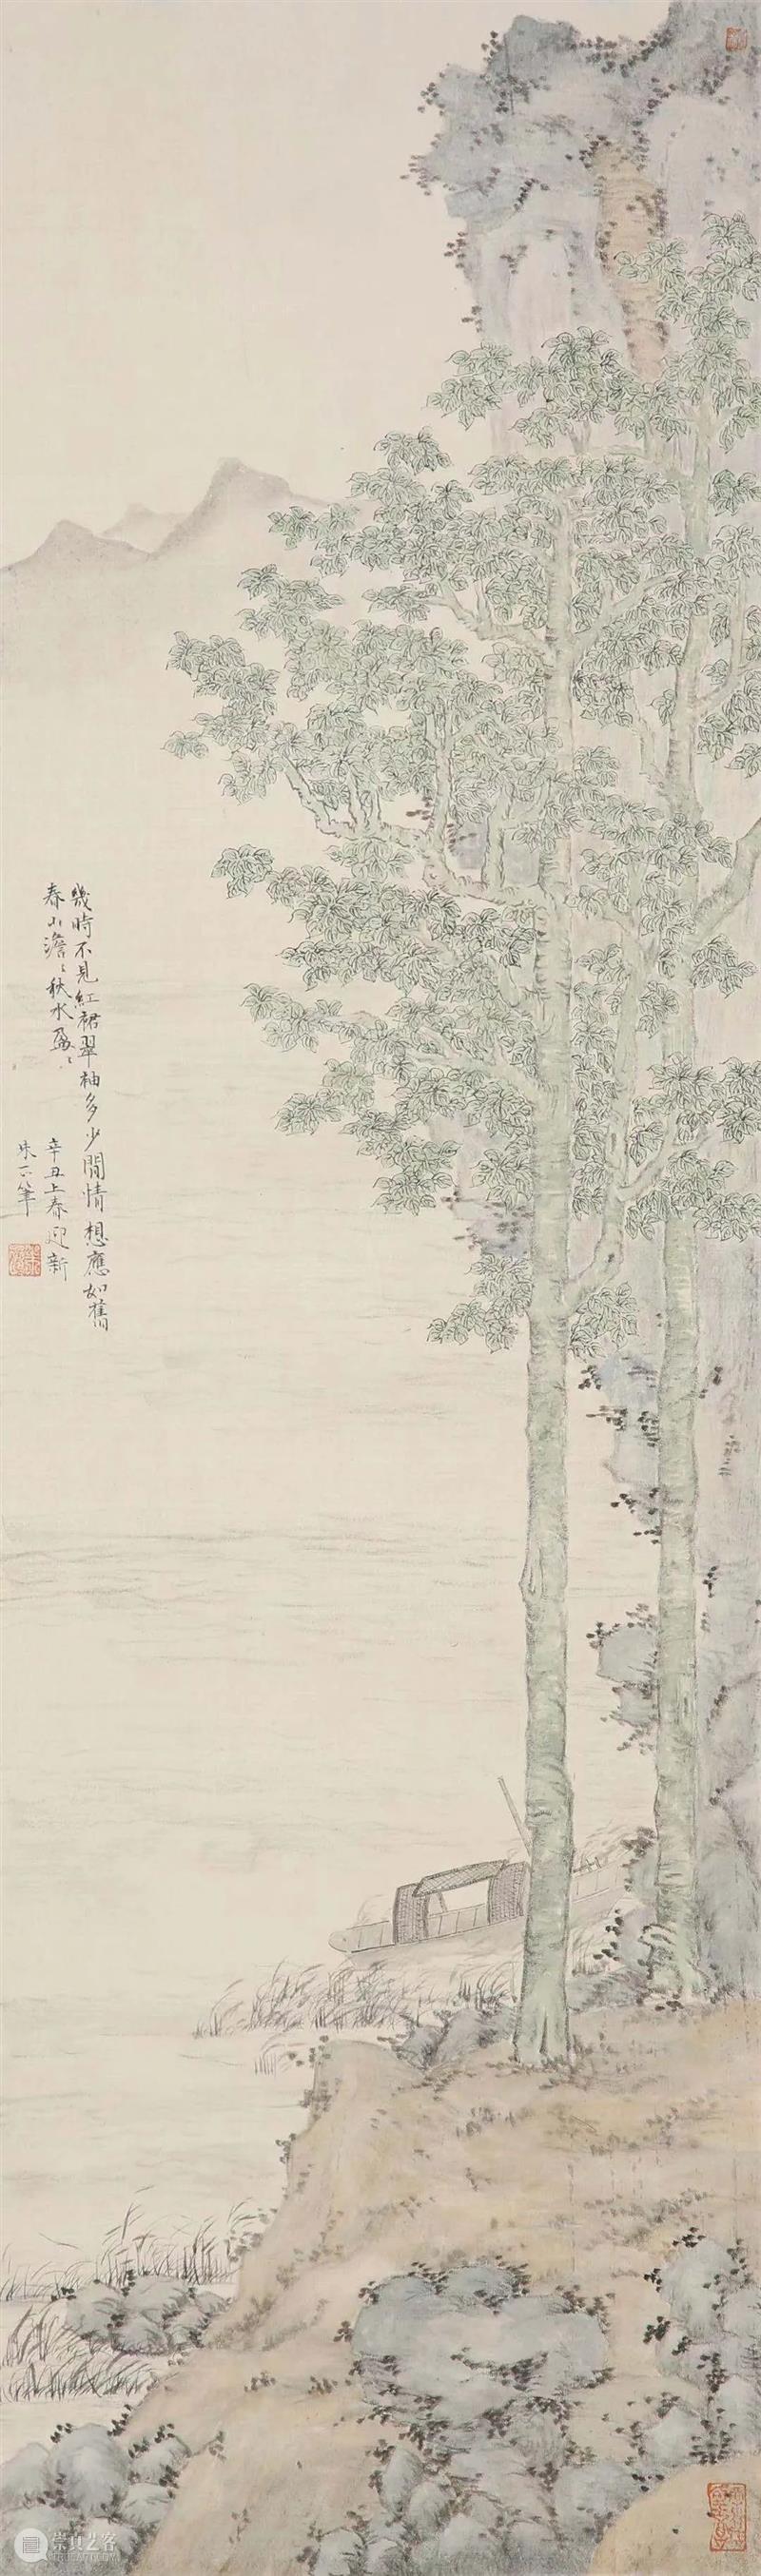 幾時不見紅裙翠袖多少閒情想應如舊
春山澹〻秋水盈〻
辛丑上春迎新
朱 筆
崇真艺客